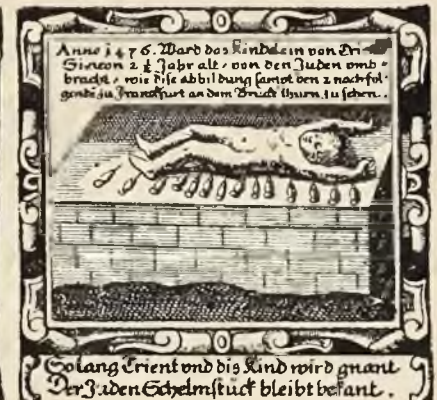 Anno 1476. Ward das Kindelein von Tri-
Simeon 2½ Jahr alt, von den Juden vmb-
bracht, wie dise abbildung sampt den 2 nachfol-
gende zu Franckfurt an dem Bruck thurn zu sehen.
So lang Trient vnd dis Kind wird gnant
Der Juden Schelmstuck bleibt bekant.